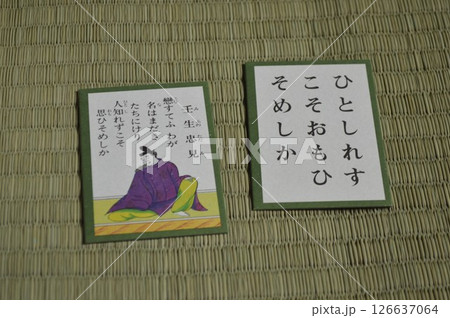 壬生忠見
戀すてふ わが
名はまだき
たちにけり
人知れずこそ
思ひそめしか
ひとしれす
こそおもひ
そめしか
126637064